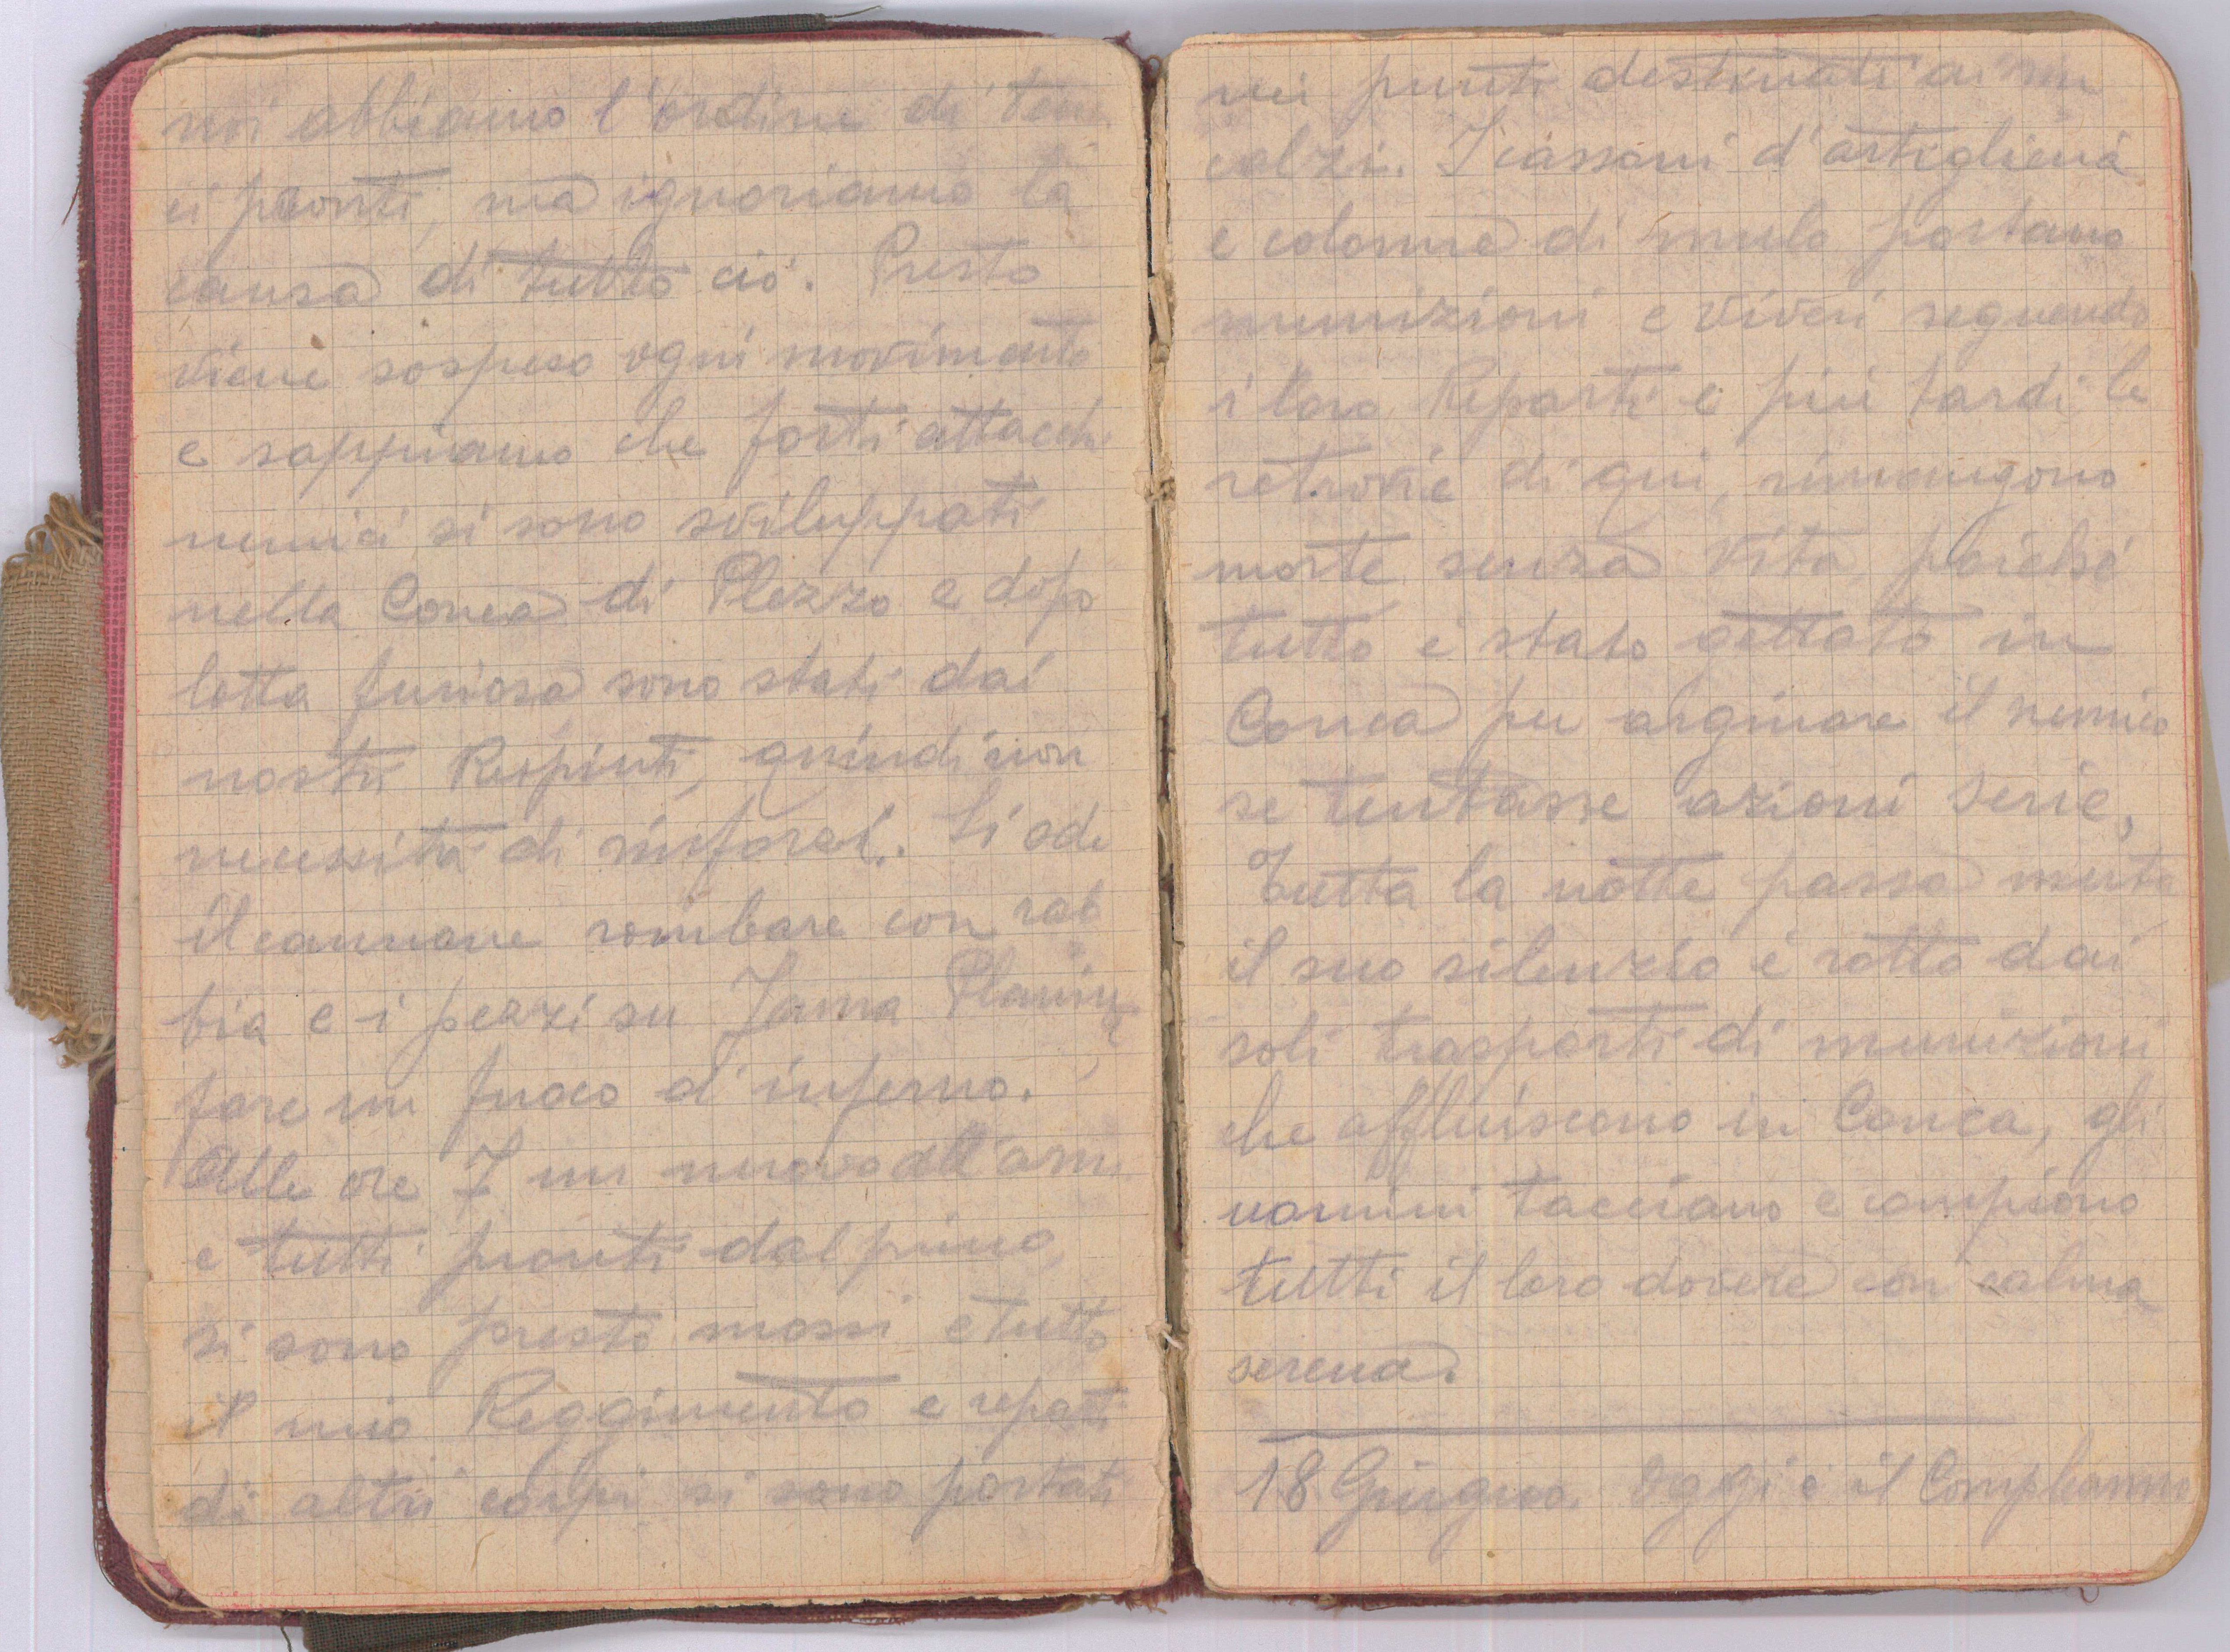 noi abbiamo l'ordine di tener
ci pronti, ma ignoriamo la
causa di tutto ciò. Presto
viene sospeso ogni movimento
e sappiamo che forti attacchi
nemici si sono sviluppati
nella Conca di Plezzo e dopo
lotta furiosa sono stati dai
nostri Respinti, quindi non
necessità di rinforzi. Si ode
il cannone rombare con rab
bia e i pezzi su Jama Planina
fare un fuoco d'inferno.
Alle ore 7 un nuovo all'armi
e tutti pronti dal primo,
si sono presto mossi e tutto
il mio Reggimento e reparti
di altri corpi si sono portati
nei punti destinati ai rin
calzi. I cassoni d'artiglieria
e colonne di mulo portano
munizioni e viveri seguendo
i loro Reparti e più tardi le
retrovie di qui, rimangono
morte senza vita, poiché
tutto è stato gettato in
Conca per arginare il nemico
se tentasse azioni serie,
Tutta la notte passa muta
il suo silenzio è rotto dai
soli trasporti di munizioni
che affluiscono in Conca, gli
uomini tacciano e compiono
tutti il loro dovere con calma
serena.
18 Giugno. Oggi è il Compleanno